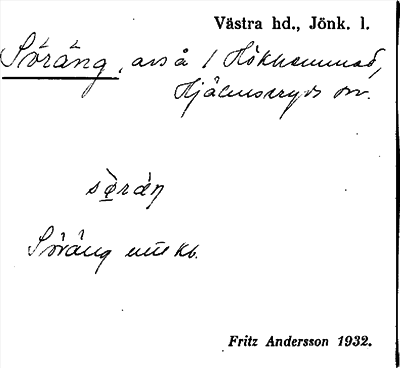 Västra hd., Jönk. l.
Söräng, avs å 1 Hökhammad,
Hjälmseryds sn.
sø̀ræ̀ŋ
Söräng
Fritz Andersson 1932.